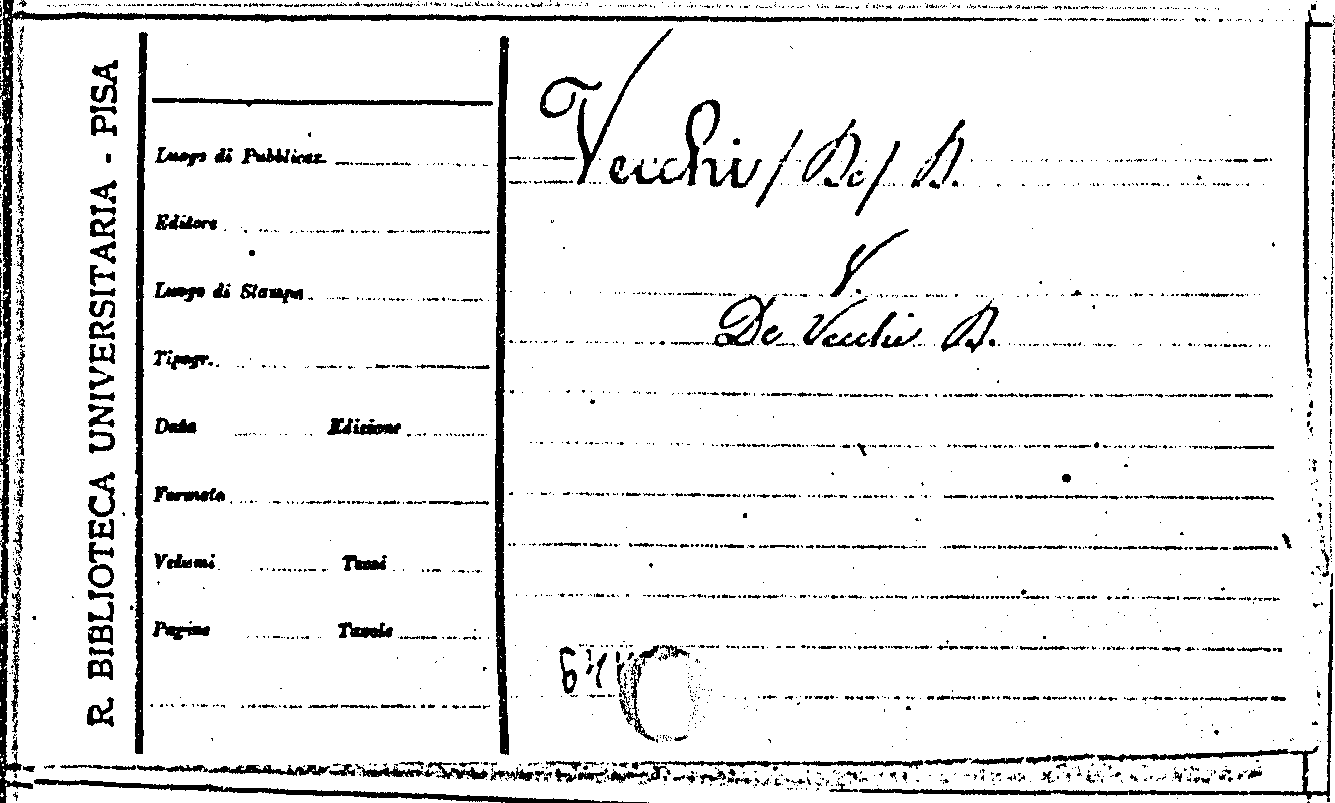 R. BIBLIOTECA UNIVERSITARIA - PISA
Luogo di Pubblicaz.
Editore
Luogo di Stampa
Tipogr.
Data Edizione
Formato
Volumi Tomi
Pagine Tavole
Vecchi / De / B.
V.
De Vecchi B.